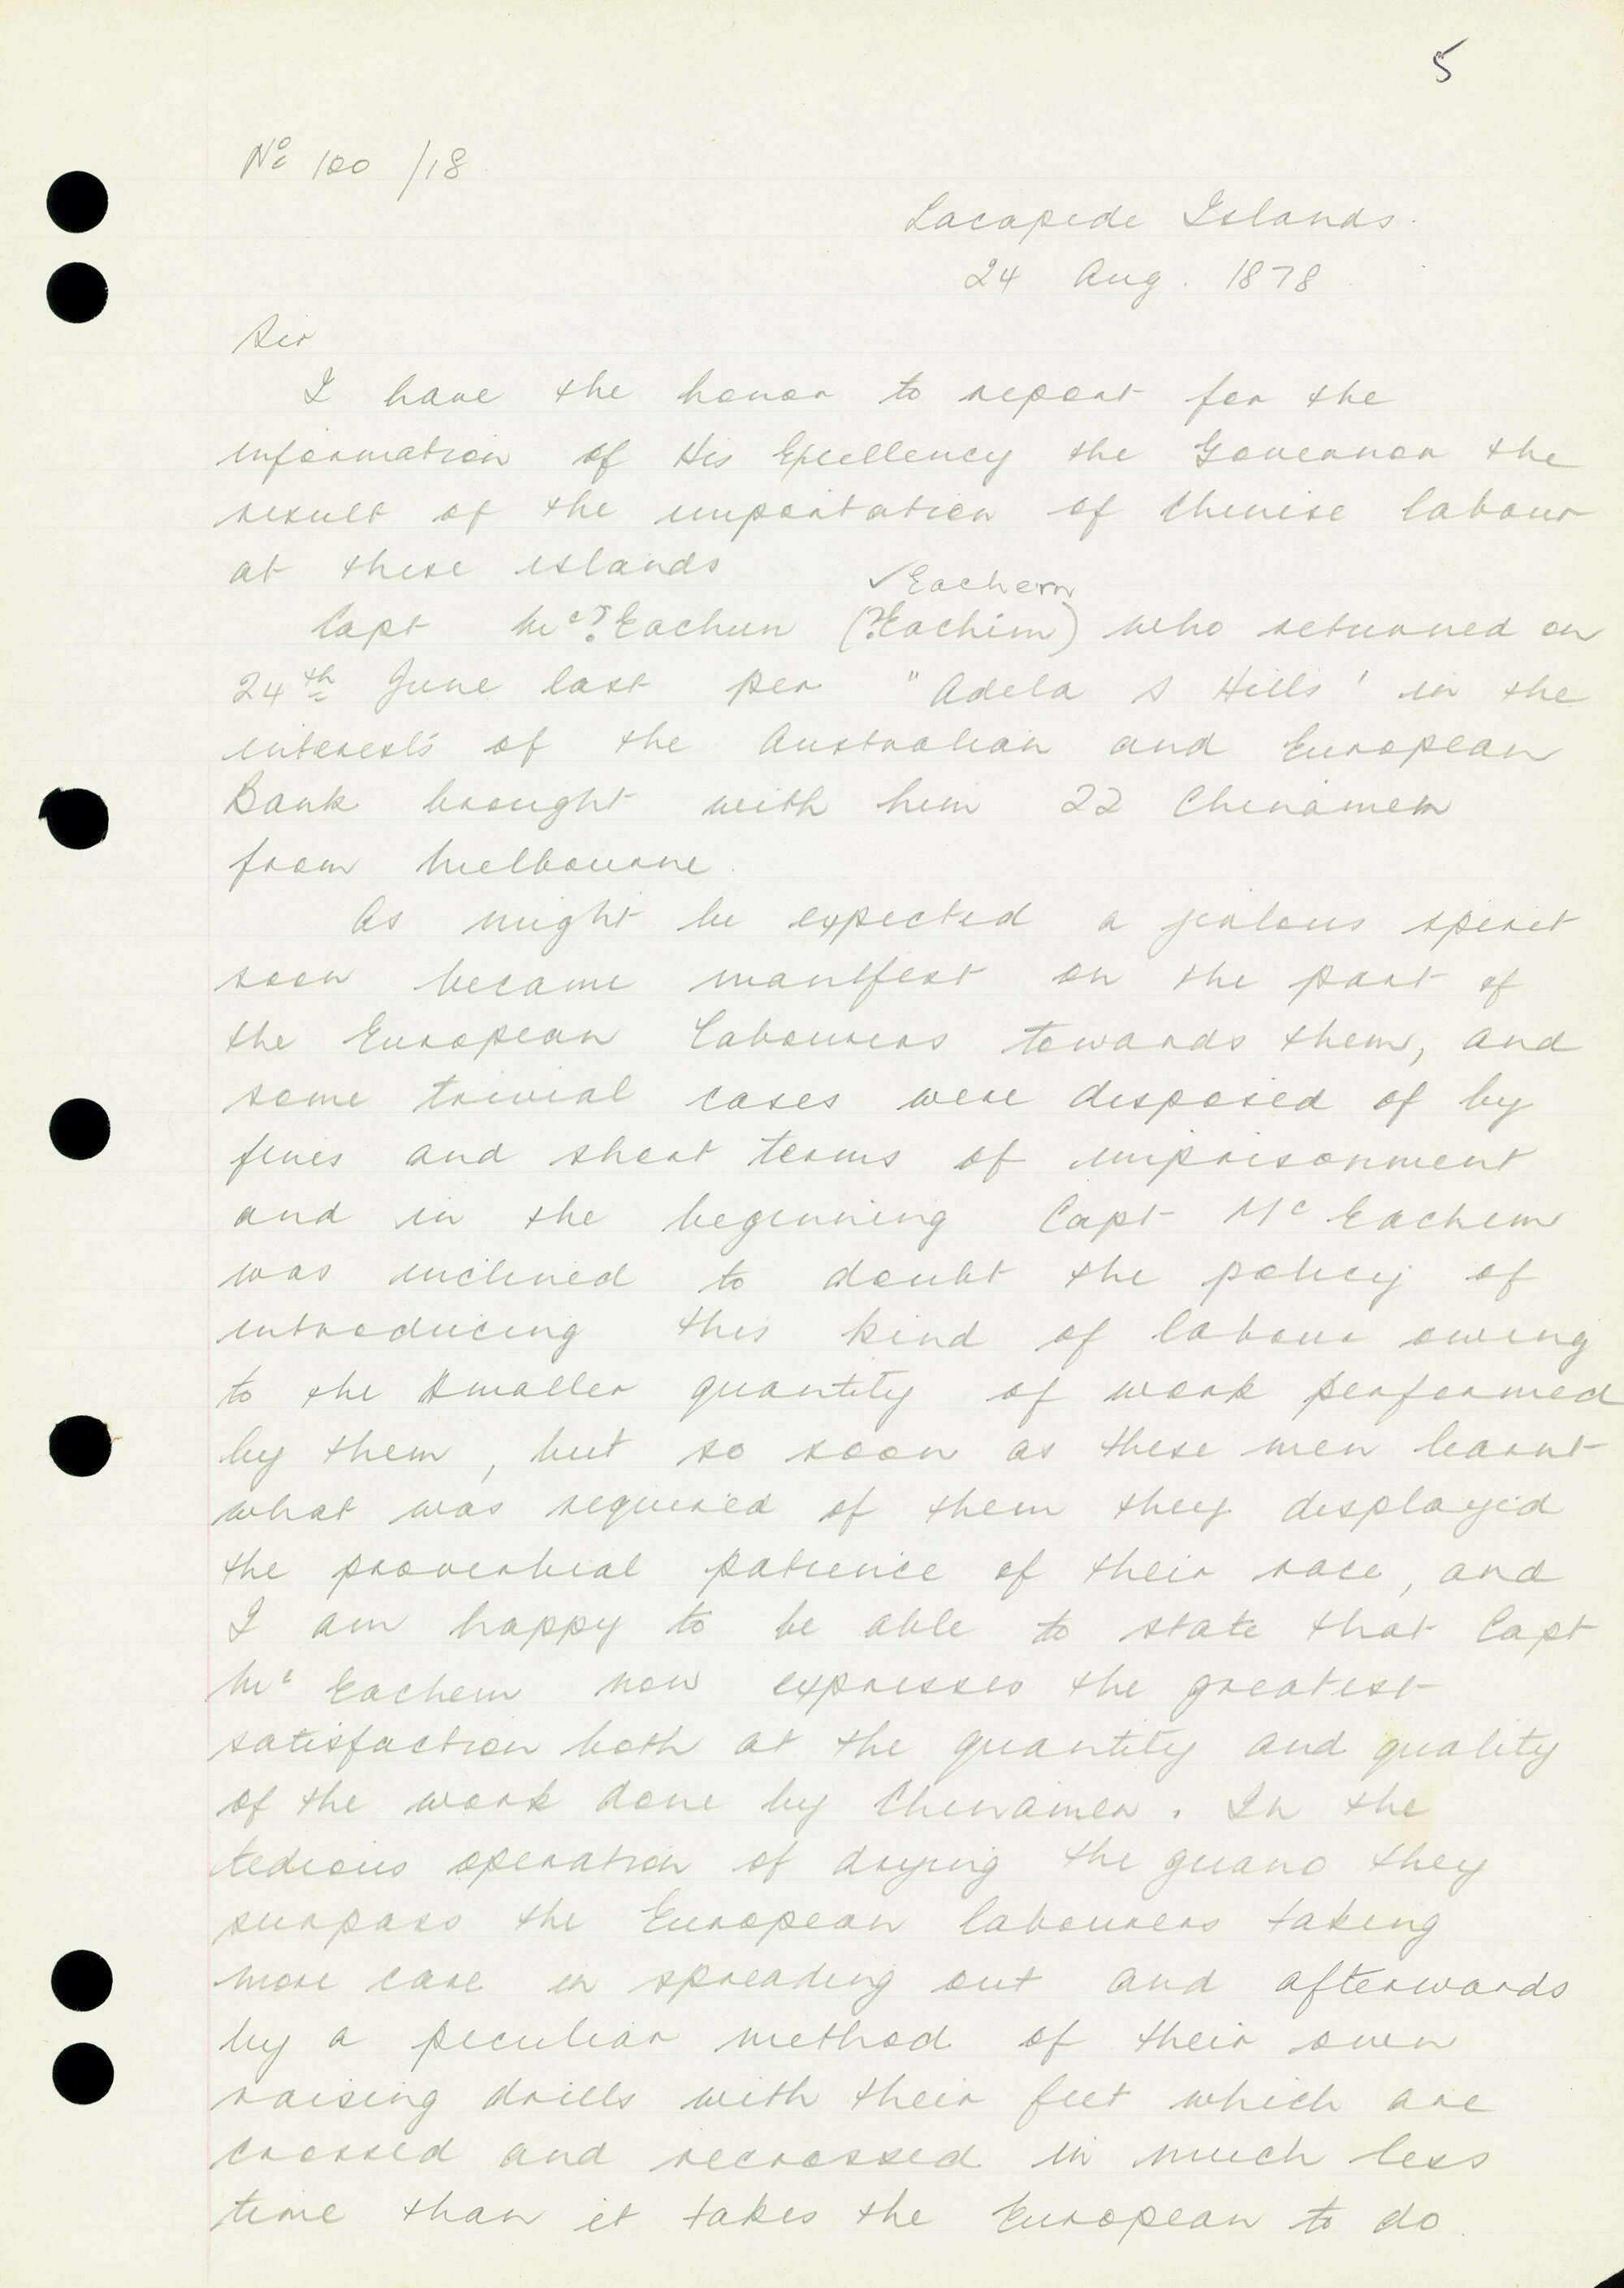 5
No 100 /18
Lacapede Islands.
24 Aug. 1878
Sir
I have the honor to report for the
information of His Excellency the Governor the
result of the importation of Chinese labour
at these islands
✓Eachern
Capt Mc? Eachun (?Eachim) who returned on
24th June last per "Adela S Hills' in the
interests of the Australian and European
Bank brought with him 22 Chinamen
from Melbourne.
As might be expected a jealous spirit
soon became manifest on the part of
the European Labourers towards them, and
some trivial cases were disposed of by
fines and short terms of imprisonment
and in the beginning Capt Mc Eachern
was inclined to doubt the policy of
introducing this kind of labour owing
to the smaller quantity of work performed
by them, but so soon as these men learnt
what was required of them they displayed
the proverbial patience of their race, and
I am happy to be able to state that Capt
Mc Eachern now expresses the greatest
satisfaction both at the quantity and quality
of the work done by Chinamen. In the
tedious operation of drying the guano they
surpass the European labourers taking
more care in spreading out and afterwards
by a peculiar method of their own
raising drills with their feet which are
crossed and recrossed in much less
time than it takes the European to do.